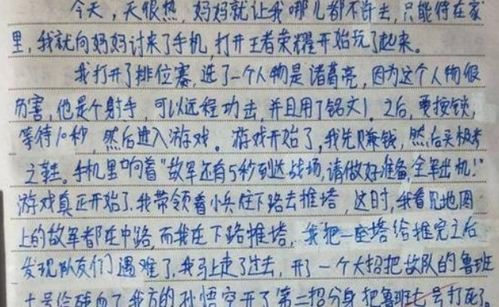 今天，天很热，妈妈就让我哪儿都不许去，只能待在家
里，我就向妈妈讨来了手机，打开王者荣耀开始玩了起来。
我打开了排位赛，选了一个人物是诸葛亮，因为这个人物很
厉害，他是个射手，可以远程功击，并且用了铭文1。之后，要按锁，
等待10秒，然后进入游戏。游戏开始了，我先赚钱，然后买极来
之鞋。手机里响着“敌军还有5秒到达战场，请做好准备，全军出机！”
游戏真正开始了，我带领着小兵往下路去推塔，这时，我看见地图
上的敌军都在中路，而我在下路推塔，我把一座塔给推完之后，
发现队友们遇难了，我马上走了过去，开了一个大招把敌队的鲁班
七号给残血了，我方的孙悟空开了第二招分身把鲁班七号打死了